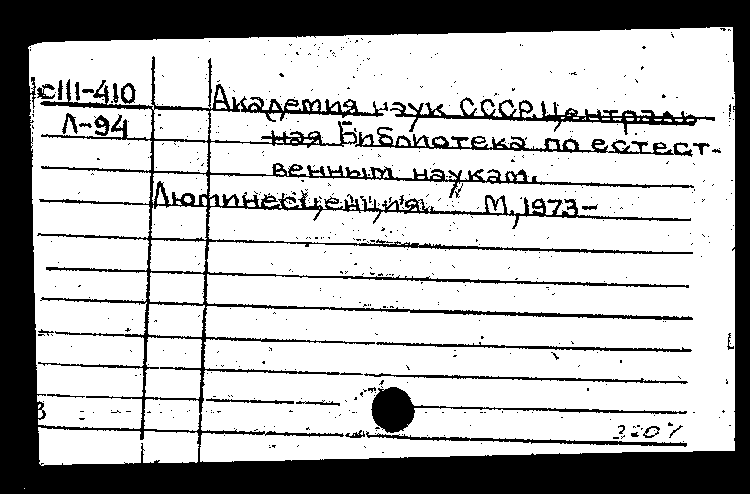 сIII-410
Л-94
Академия наук СССР. Централь-
ная Библиотека по естест-
венным наукам.
Люминесценция. М., 1973-